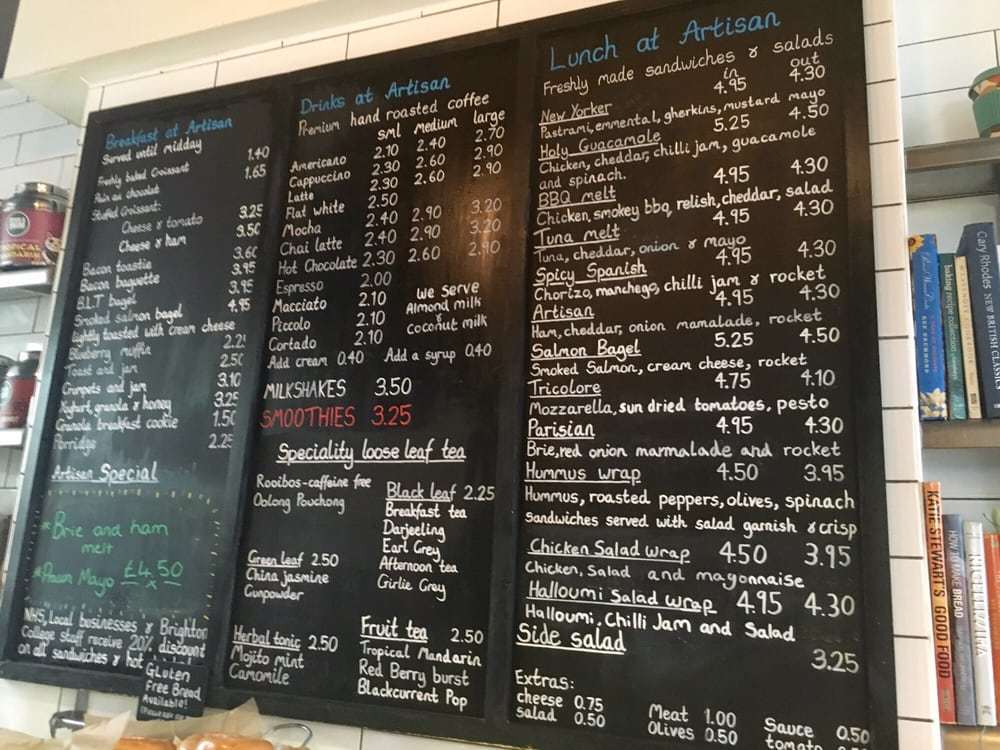 Breakfast at Artisan
Served until midday
Freshly baked Croissant 1.40
Pain au chocolat 1.65
Stuffed Croissant:
Cheese & tomato 3.25
Cheese & ham 3.50
Bacon toastie 3.60
Bacon baguette 3.95
B.L.T bagel 3.95
Smoked salmon bagel 4.95
lightly toasted with cream cheese
Blueberry muffin
Toast and jam
Crumpets and jam 3.10
Yoghurt, granola & honey 3.25
Granola breakfast cookie 1.50
Porridge 2.25
Artisan Special
*Brie and ham
melt
*Prawn Mayo £4.50
NHS, Local businesses & Brighton
College staff receive 20% discount
on all sandwiches & hot
Gluten
Free Bread
Available!
Drinks at Artisan
Premium hand roasted coffee
sml medium large
Americano 2.10 2.40 2.70
Cappuccino 2.30 2.60 2.90
Latte 2.30 2.60 2.90
Flat white 2.50
Mocha 2.40 2.90 3.20
Chai latte 2.40 2.90 3.20
Hot Chocolate 2.30 2.60 2.90
Espresso 2.00
Macciato 2.10
Piccolo 2.10
Cortado 2.10
we serve
Almond milk
&
coconut milk
Add cream 0.40 Add a syrup 0.40
MILKSHAKES 3.50
SMOOTHIES 3.25
Speciality loose leaf tea
Rooibos-caffeine free
Oolong Pouchong
Black leaf 2.25
Breakfast tea
Darjeeling
Earl Grey
Afternoon tea
Girlie Grey
Green leaf 2.50
China jasmine
Gunpowder
Herbal tonic 2.50
Mojito mint
Camomile
Fruit tea 2.50
Tropical Mandarin
Red Berry burst
Blackcurrent Pop
Lunch at Artisan
Freshly made sandwiches & salads
in out
New Yorker 4.95 4.30
Pastrami, emmental, gherkins, mustard mayo
Holy Guacamole 5.25 4.50
Chicken, cheddar, chilli jam, guacamole
and spinach.
BBQ melt 4.95 4.30
Chicken, smokey bbq, relish, cheddar, salad
Tuna melt 4.95 4.30
Tuna, cheddar, onion & mayo
Spicy Spanish 4.95 4.30
Chorizo, manchego, chilli jam & rocket
Artisan 4.95 4.30
Ham, cheddar, onion mamalade, rocket
Salmon Bagel 5.25 4.50
Smoked Salmon, cream cheese, rocket
Tricolore 4.75 4.10
Mozzarella, sun dried tomatoes, pesto
Parisian 4.95 4.30
Brie, red onion marmalade and rocket
Hummus wrap 4.50 3.95
Hummus, roasted peppers, olives, spinach
Sandwiches served with salad garnish & crisp
Chicken Salad wrap 4.50 3.95
Chicken, Salad and mayonnaise
Halloumi Salad wrap 4.95 4.30
Halloumi, Chilli Jam and Salad
Side salad 3.25
Extras:
cheese 0.75
salad 0.50
Meat 1.00
Olives 0.50
Sauce 0.50
Cary Rhodes NEW BRITISH CLASSICS
baking recipe collection
KATE STEWART'S GOOD FOOD
HOW TO BAKE BREAD